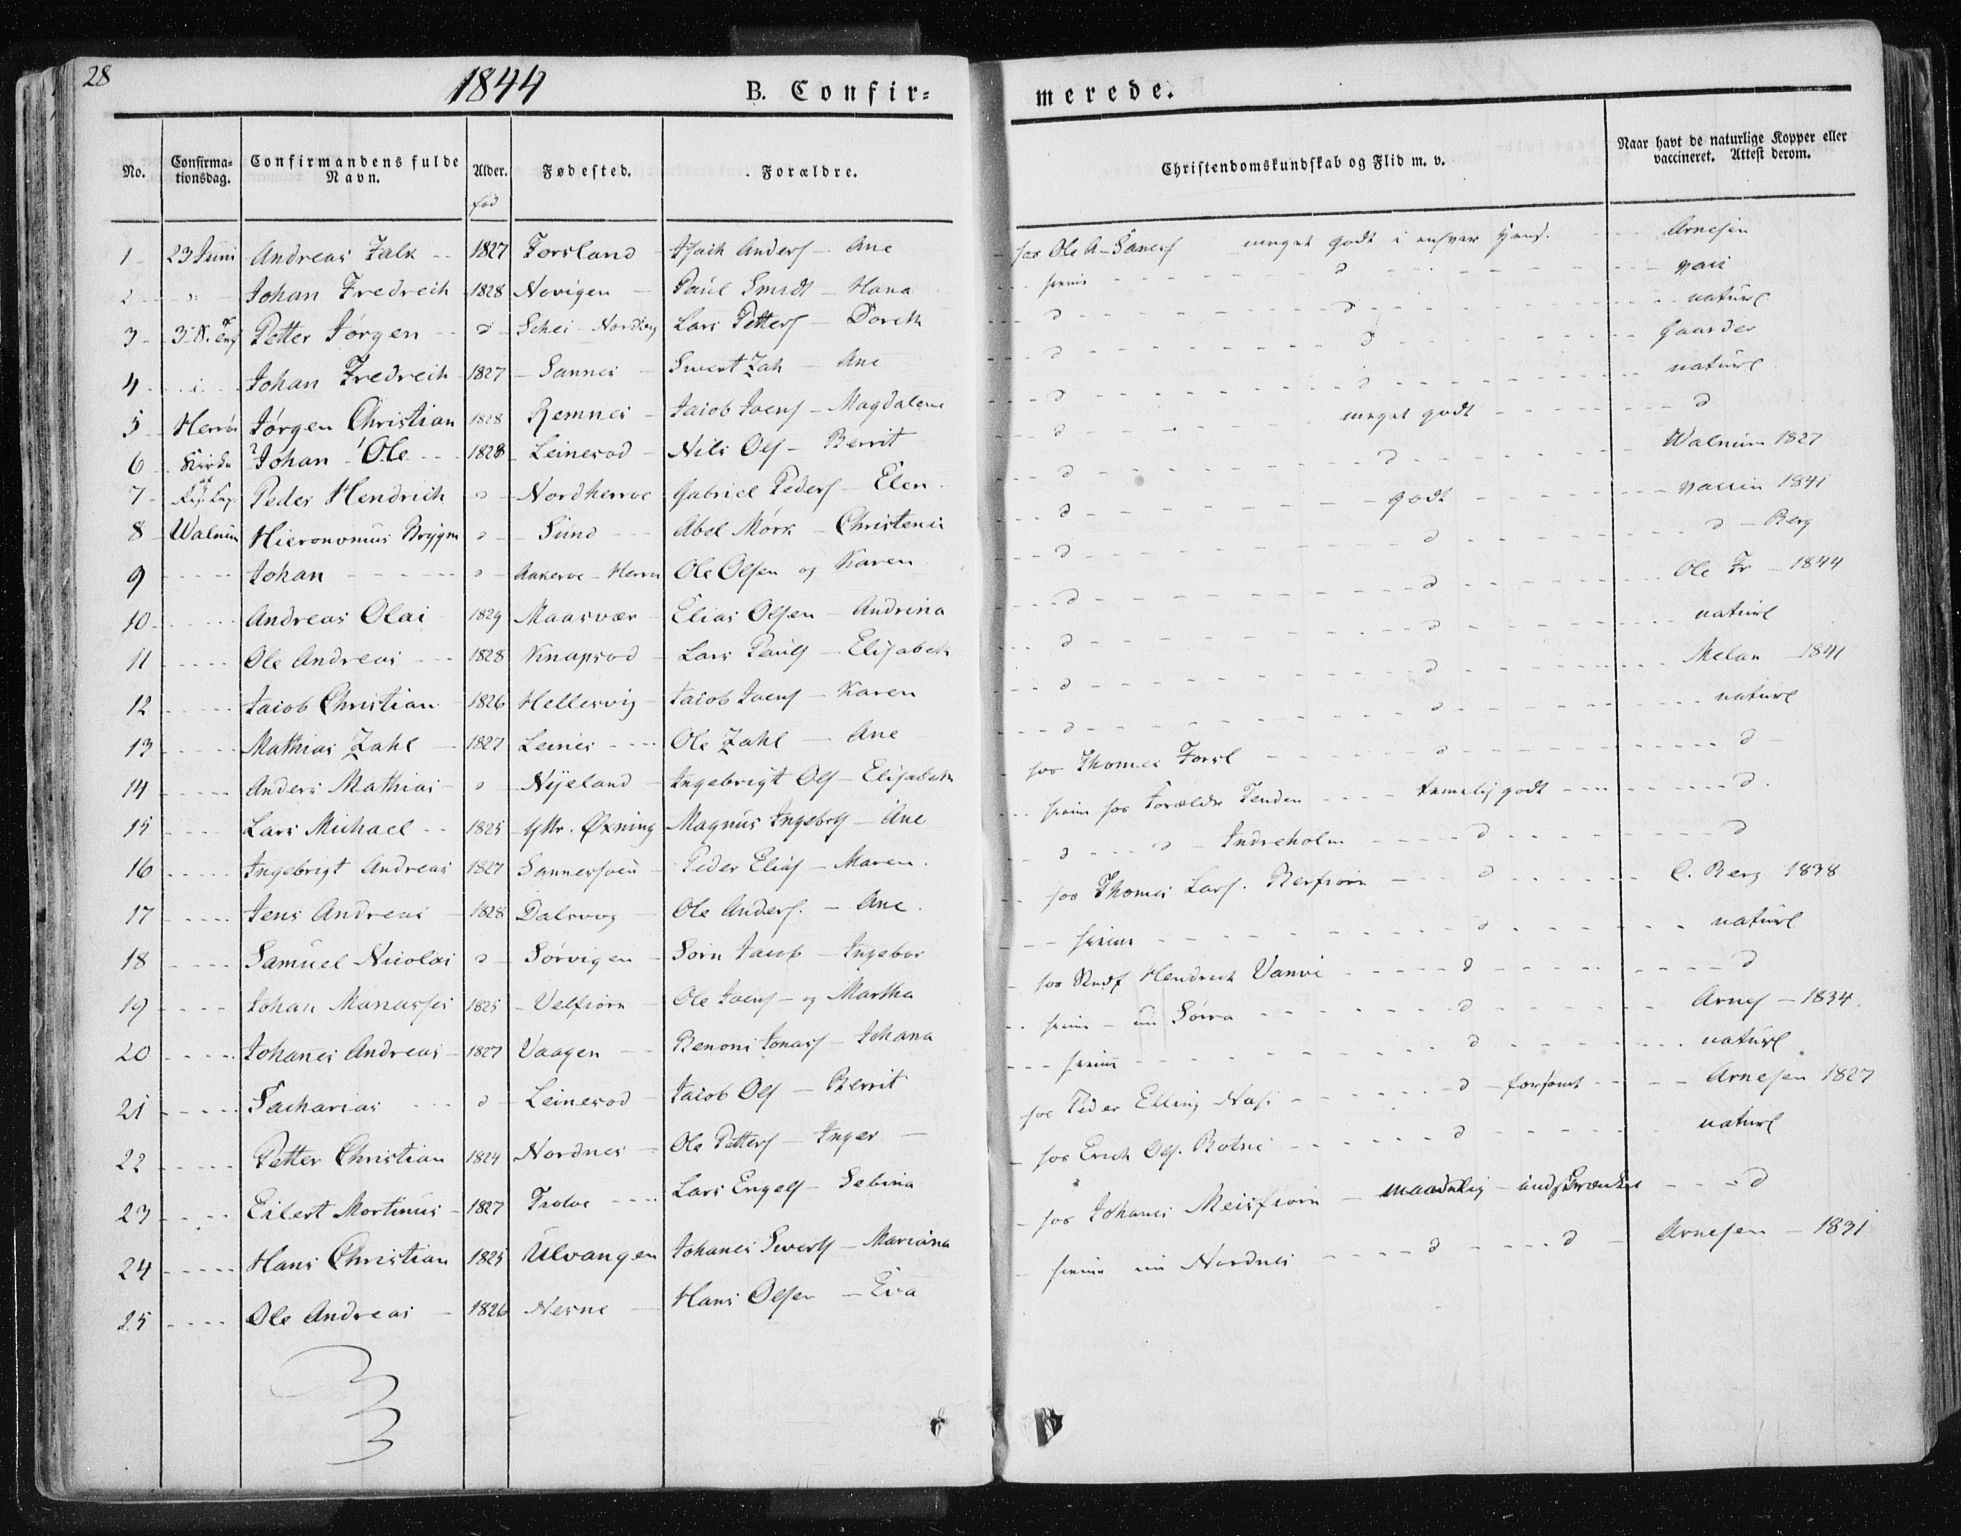 28
1844
B. Confir-
merede.
No. Confirma-tionsdag. Confirmandens fulde Navn. Alder. Fødested. Forældre. Christendomskundskab og Flid m. v. Naar havt de naturlige Kopper eller vaccineret. Attest derom.
fød
1 - 23 Juni Andreas Falk - - 1827 Forsland - Anders - Ane hos Ole A meget godt i enhver Arnesen
2 - " - Johan Fredrich 1828 Nevigen - Paul Smidt - Hana d vacc
3 - Petter Jørgen - d - Schei - Lars Petters - Doreth d d naturl
4 - Johan Fredreich 1827 - Sannes - Swert Zah - Ane d d
5 - Herrø Jørgen Christian 1828 Remnes - Jacob Joens - Magdalene d d naturl
6 Kirke Johan Ole - 1828 - Leinesod - Nils Ols - Berrit d meget godt d
7 - Peder Hendrich d - Nordherroe Gabriel Peders - Elen d d Walnum 1827
8 - Walnum Hieronomus d - Sund - Abel Mørk - Christense d godt vaccin 1841
9 - Johan - d - Ole Olsen og Karen d d d - Berg
10 - Andreas Olai 1829 Maasvær Elias Olsen - Andrina d d Ole Fr - 1844
11 - Ole Andreas - 1828 Knapsod - Lars Pauls - Elisabeth d d naturl
12 - Jacob Christian - 1826 Hellesvig - Jacob Joens - Karen d d Melan - 1841
13 - Mathias Zahl - 1827 Leines - Ole Zahl - Ane d d naturl
14 - Anders Mathias - d - Nyeland - Ingebrigt Ols - Elisabeth hos Thomes Forsl d d
15 - Lars Michael - 1825 - Øxning Magnus Ingebr - Ane hos Forældr temelig godt d
16 - Ingebrigt Andreas 1827 Peder Elias - Maren d Indreholm d d
17 - Jens Andreas - 1828 Dalsvog - Ole Anders. - Ane hos Thomes Lars. d C. Berg 1838
18 - Samuel Nicolai d - Sørvigen - Sørn Jacob - Ingebor d naturl
19 - Johan Manasses 1825 - Velfiorn - Ole Joens - og Martha hos Hendrich d d
20 - Johanes Andreas - 1827 Vaagen - Benoni Jonas - Johana d Arnes - 1834
21 - Sacharias - d - Leinesod - Jacob Ols - Berrit d naturl
22 - Petter Christian 1824 Nordnes - Ole Petters - Inger - hos Peder Elling d - forsømt Arnesen 1827
23 - Eilert Mortinus - 1827 - Lars Engels - Sebina hos Erich Ols. d naturl
24 - Hans Christian 1825 Ulvangen Johanes Swerts - Mariana hos Johanes Meisfiorn - maadelig - indskrænket d
25 - Ole Andreas - 1826 Nesne - Hans Olsen - Eva Nordnes d d - Arnesen - 1831